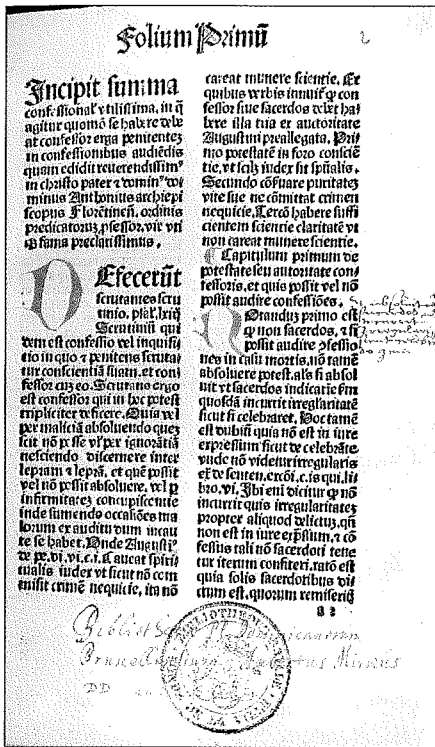 Folium Primū
Incipit summa
confessionalꝭ vtilissima, in q̄
agitur quomō se habere debe
at confessor erga penitentes
in confessionibus audiēdis
quam edidit reuerendissimꝰ
in christo pater ⁊ dominꝰ do
minus Anthonius archiepi
scopus Florētinēn. ordinis
predicatorum ꝓfessor. vir vti
fama preclarissimus.
DEfecerūt
scrutantes scru
tinio. psal. lxiij
Scrutiniū qui
dem est confessio vel inquisi
tio in quo ⁊ penitens scruta
tur conscientiā suam. et con
fessor cuꝫ eo. Scrutans ergo
est confessor qui in hoc potest
tripliciter deficere. Quia vel
per maliciā absoluendo queꝫ
scit nō posse vel per ignorātiā
nesciendo discernere inter
lepram ⁊ leprā. et quē possit
vel nō possit absoluere. vel ꝑ
infirmitatē concupiscentie
inde sumendo occasiōes ma
lorum ex auditu dum incau
te se habet. Unde Augusti.
de pe. di. vi. c. i. Caueat spiri
tualis iudex vt sicut nō com
misit crimē nequicie, ita nō
careat munere scientie. Ex
quibus verbis innuit ꝙ con
fessor siue sacerdos debet ha
bere illa tria ex auctoritate
Augustini preallegata. Pri
mo potestatē in foro conscie
tie. vt scilꝫ iudex sit spūalis.
Secundo cōseruare puritateꝫ
vite sue ne cōmittat crimen
nequicie. Tercō habere suffi
cientem scientie claritatē vt
non careat munere scientie.
¶ Capitulum primum de
potestate seu autoritate con
fessoris. et quis possit vel nō
possit audire confessiōes.
primo est
ꝙ non sacerdos, ⁊ si
possit audire ꝯfessio
nes in casu mortis. nō tamē
absoluere potest. als si absol
uit vt sacerdos indicatiue ẜm
quosdā incurrit irregularitatē
sicut si celebraret. Hoc tamē
est dubiū quia nō est in iure
expressum sicut de celebrāte.
vnde nō videtur irregularis
ex de senten. excōi. c. is qui. li
bro. vi. Ibi eni dicitur ꝙ nō
incurrit quis irregularitateꝫ
propter aliquod delictuꝫ. qn̄
non est in iure exp̄ssum. ⁊ cō
fessus tali nō sacerdoti tene
tur iterum confiteri. ratō est
quia solis sacerdotibus di
ctum est. quorum remiseritꝭ
a 2
Dominicanorum
Aubertus Miraeus
DD